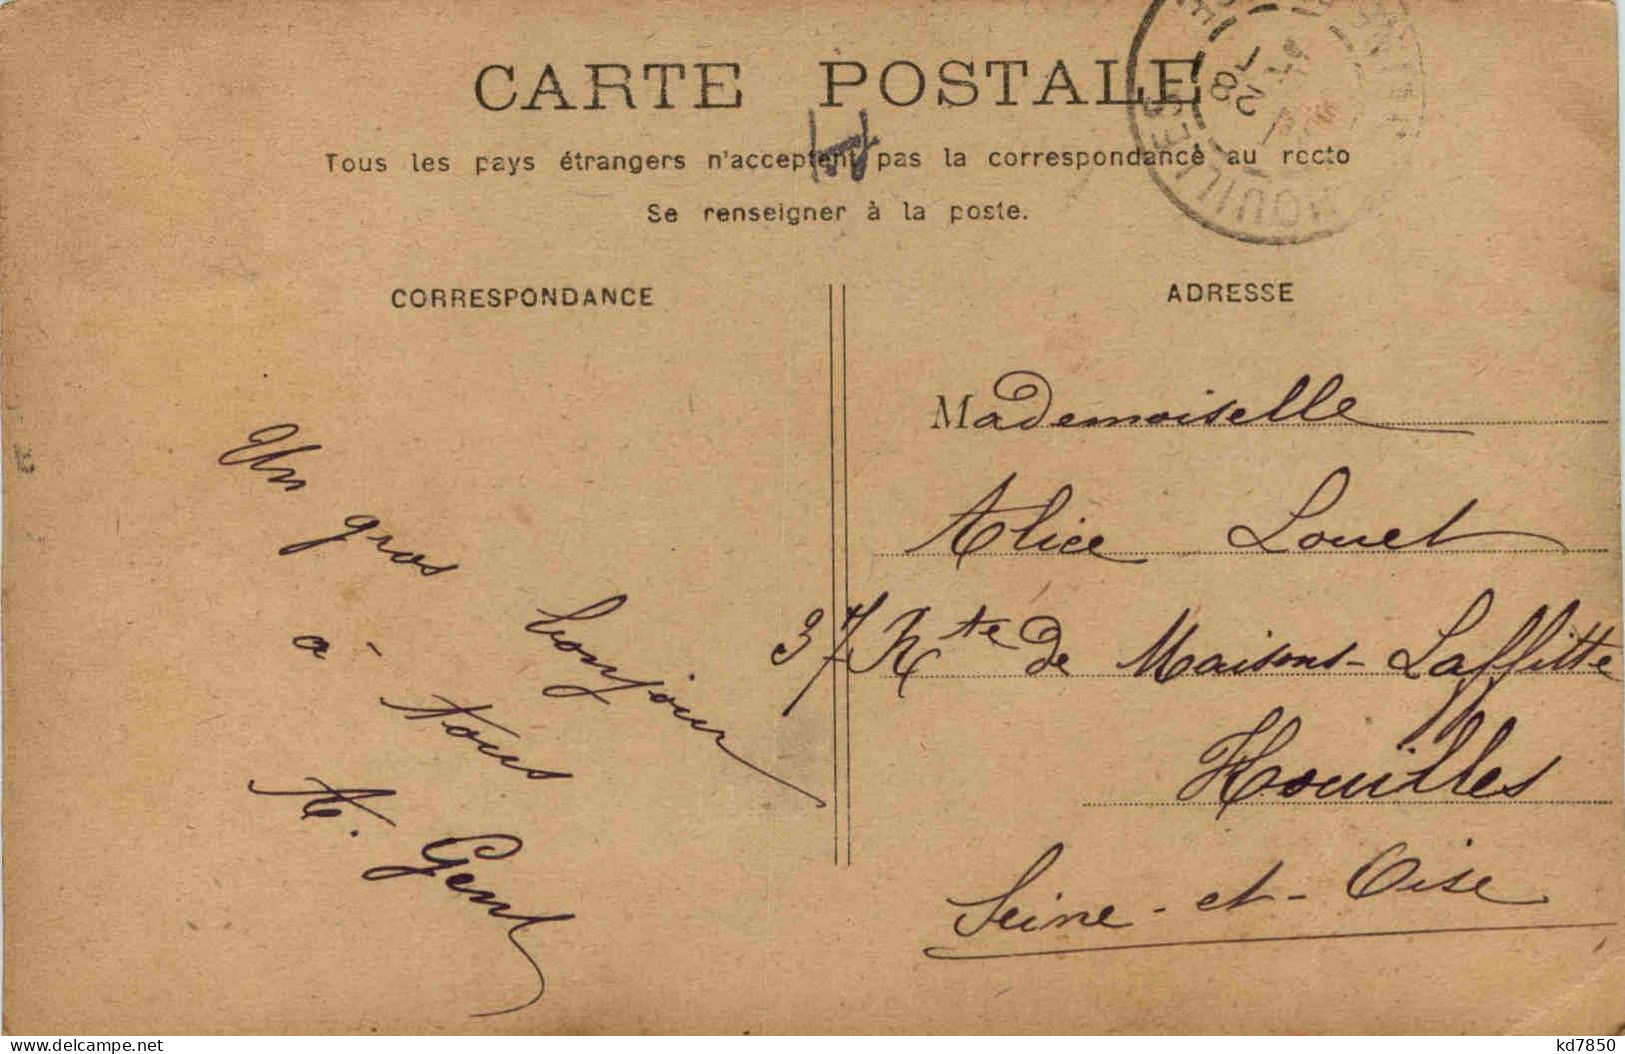 CARTE POSTALE
Tous les pays étrangers n'acceptent pas la correspondance au recto
Se renseigner à la poste.
CORRESPONDANCE
ADRESSE
Un gros bonjour
à tous
A. Gent
Mademoiselle
Alice Louet
37 Rte de Maisons-Laffitte
Houilles
Seine-et-Oise
HOUILLES
28
kd7850